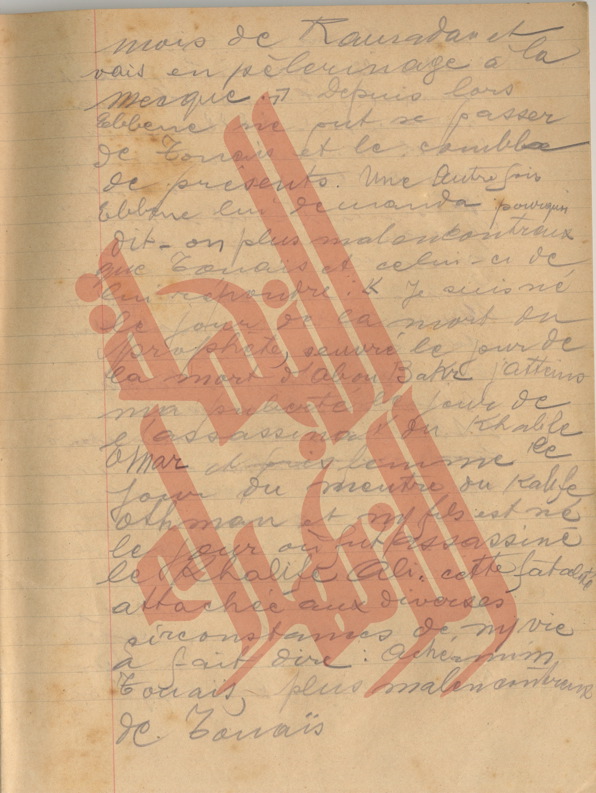 mois de Ramadan et
vais en pèlerinage à la
mecque. » depuis lors
Ebbene ne put se passer
de Touais et le combla
de presents. Une Autre fois
Ebbene lui demanda pourquoi
dit-on plus malencontreux
que Touais et celui-ci de
lui répondre : « Je suis né
le jour de la mort du
prophète, sevré le jour de
la mort d'Abou Bakr j'atteins
ma puberté le jour de
l'assassinat du Khalife
Omar et le
jour du meurtre du Kalife
Othman et my fils est né
le jour où fut assassiné
le Khalife Ali. cette fatalité
attachée aux diverses
circonstances de my vie
a fait dire :
Touais, plus malencontreux
de Touaïs